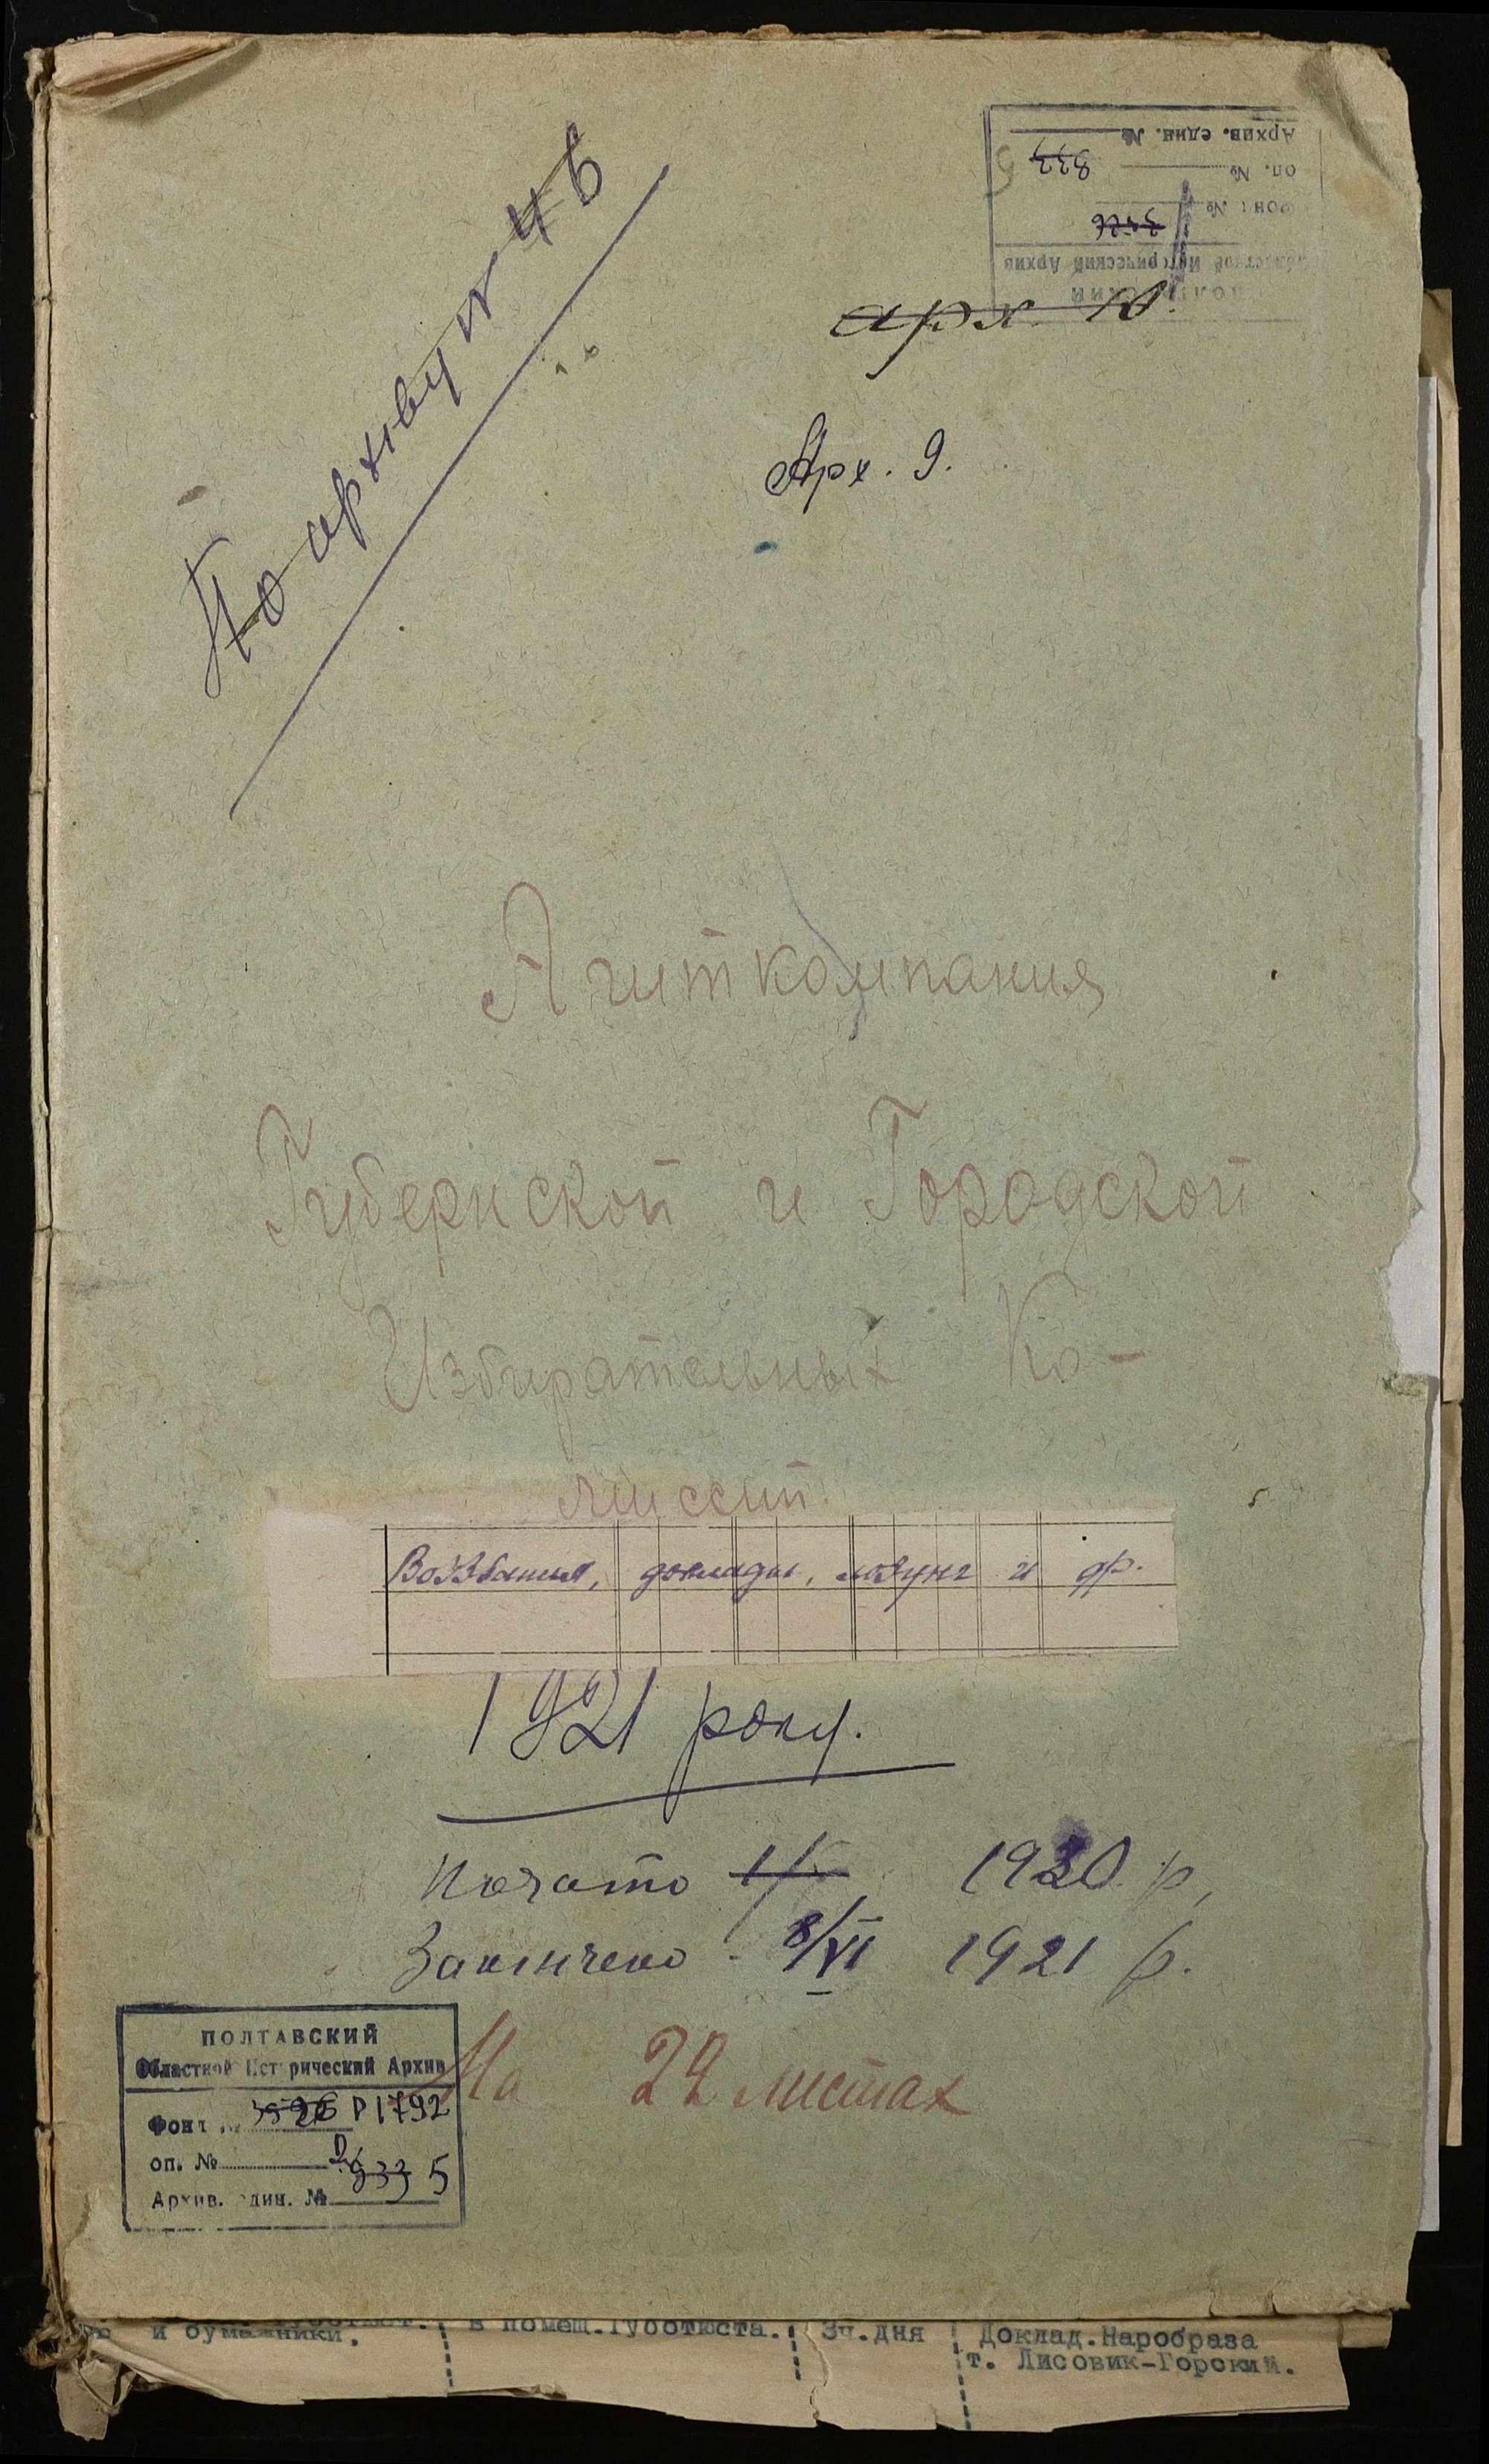 По архиву № 46
Архив. един. №
оп. № 833
Фонд № 3526
Исторический Архив
арх. 10.
Арх. 9.
Агиткомпания
Губернской и Городской
Избирательных Ко-
миссий.
Воззвания, доклады, лозунг и др.
1921 року.
Почато 1/ 1920 р,
Закінчено - 8/VI 1921 р.
На 22 листах
ПОЛТАВСКИЙ
Областной Исторический Архив
Фонд № 3526 Р1792
оп. №
Архив. един. № 833 5
и бумажники. в помещ.Губотюста. 3ч.дня Доклад.Наробраза
т. Лисовик-Горский.